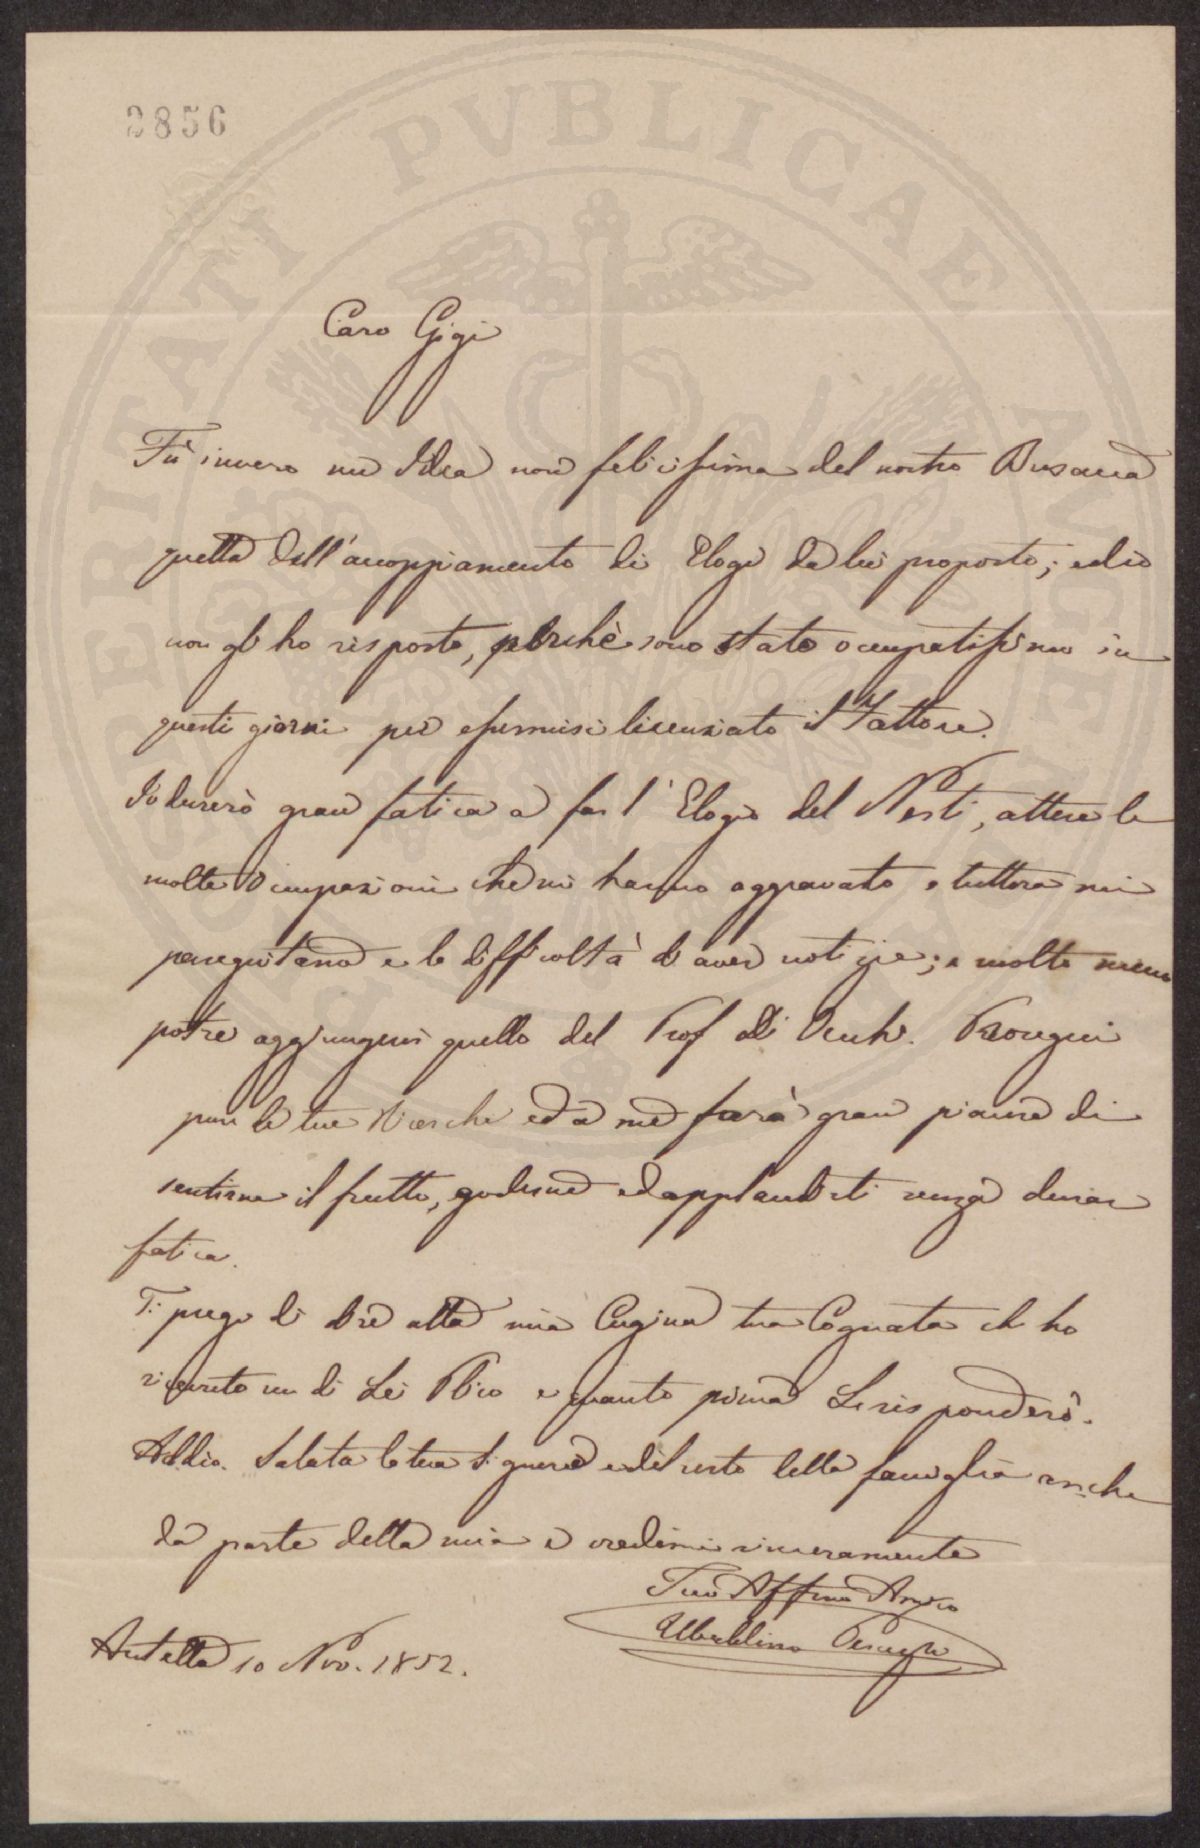 2856
PROSPERITATI PVBLICAE AVGENDAE
Caro Gigi
Fù invero un Idea non felicissima del nostro
quella dell'accoppiamento di Elogi da lui proposto; ed io
non gli ho risposto, perchè sono stato occupatissimo in
questi giorni per essermisi licenziato il Fattore.
Io durerò gran fatica a far l'Elogio del Nesti, attese le
molte Occupazioni che mi hanno aggravato e tuttora mi
perseguitano e le difficoltà di aver notizie; e molto meno
potrei aggiungervi quello del Prof
pure le tue Ricerche ed a me farà gran piacere di
sentirne il frutto, goderne ed applaudirti senza durar
fatica.
Ti prego di dire alla mia Cugina tua Cognata che ho
ricevuto un di Lei Plico e quanto prima Le risponderò.
Addio. Saluta la tua Signora ed il resto della famiglia anche
da parte della mia e credimi sinceramente
Tuo Affmo Amico
Ubaldino
Antella 10 Nov. 1852.